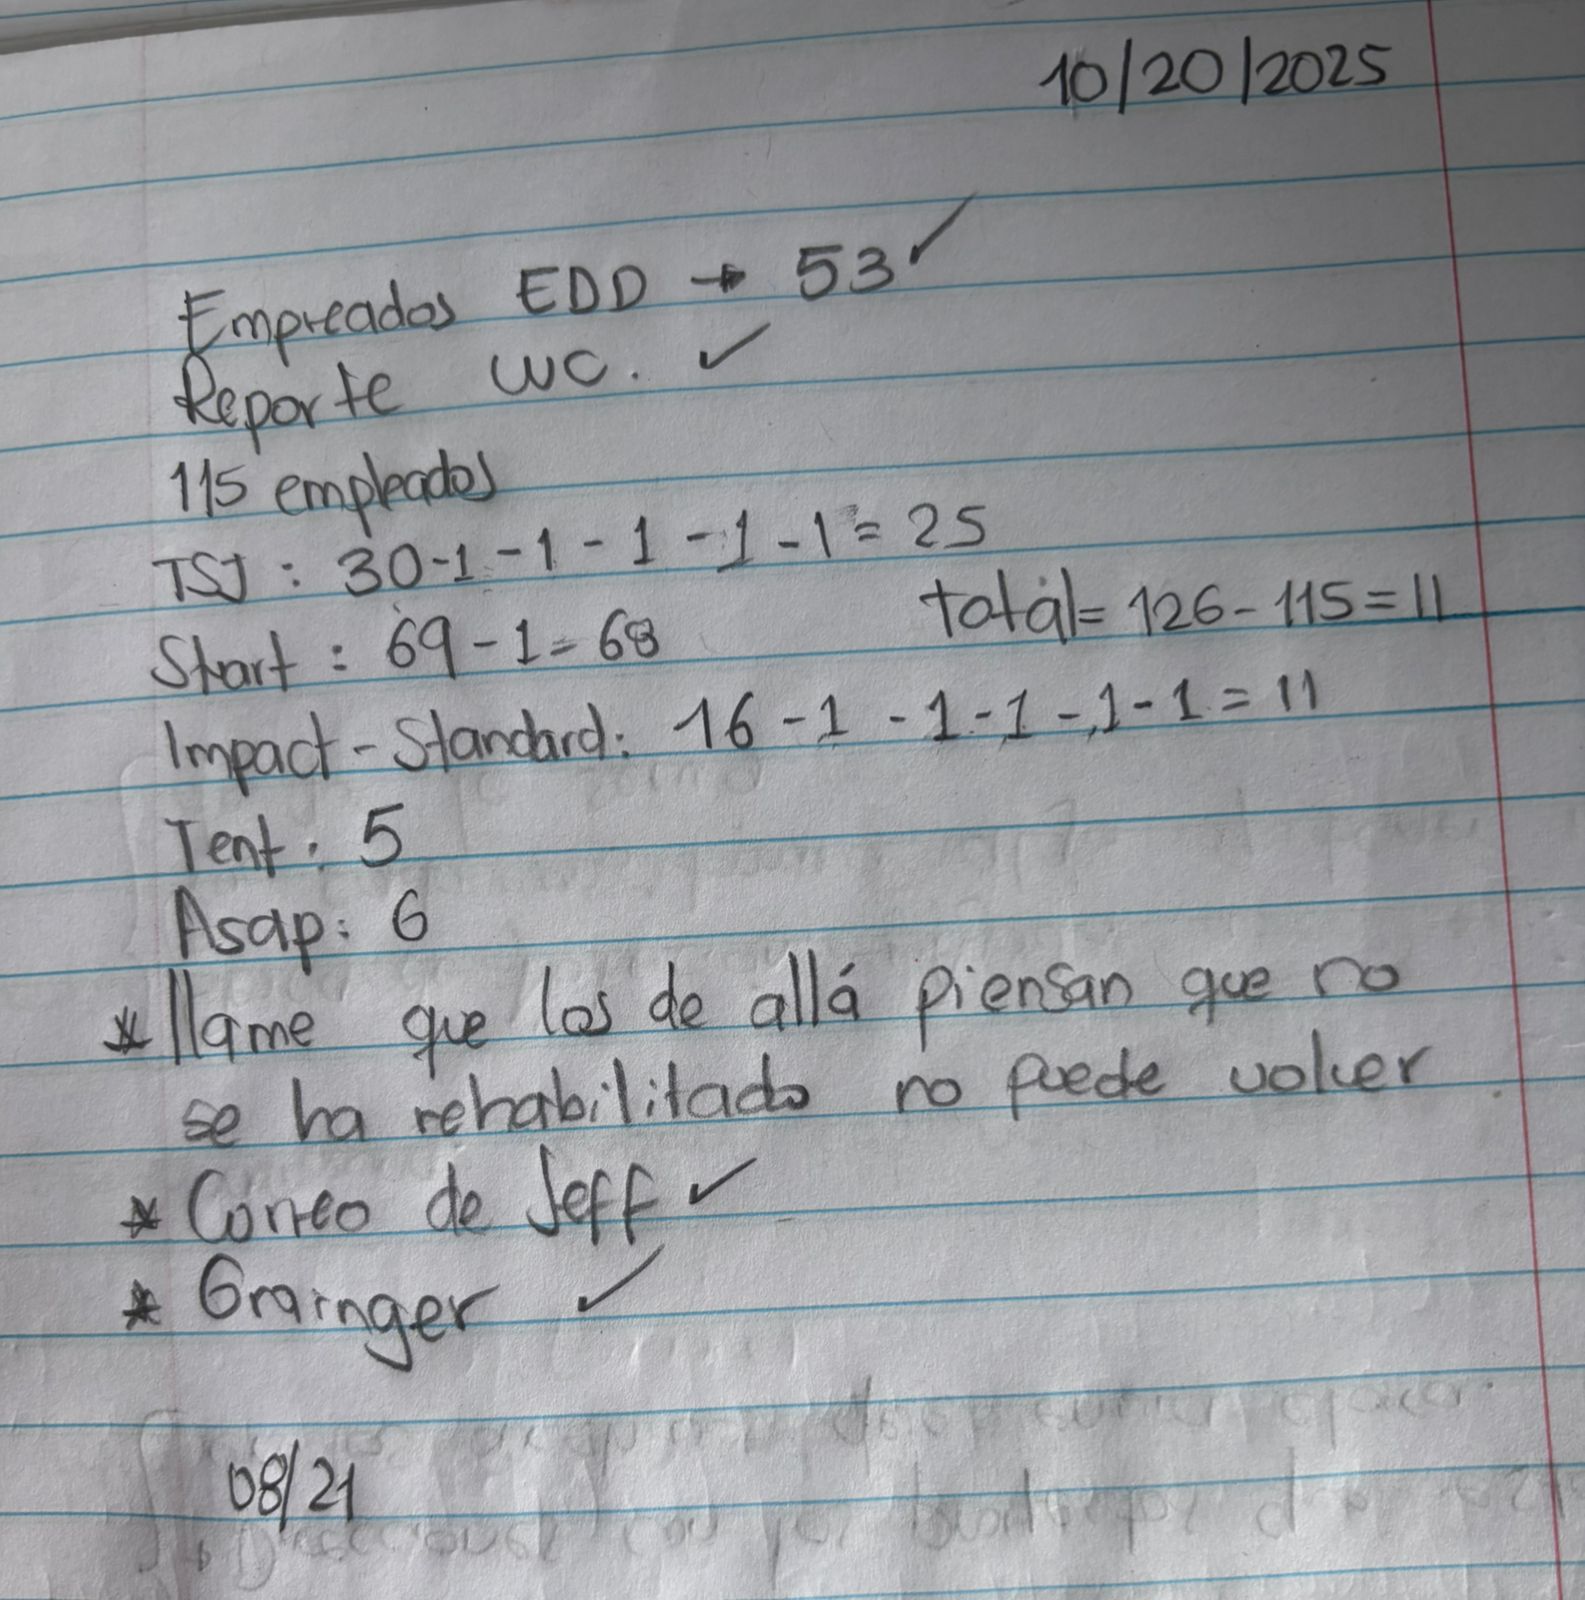 10/20/2025
Empreados EDD → 53 ✓
Reporte WC. ✓
115 empleados
TSJ : 30-1-1-1-1-1= 25
Start : 69-1= 68
total= 126-115=11
Impact-Standard: 16-1-1-1-1-1=11
Tent: 5
Asap: 6
* llame que los de allá piensan que no
se ha rehabilitado no puede volver
* Correo de Jeff ✓
* Grainger ✓
08/21